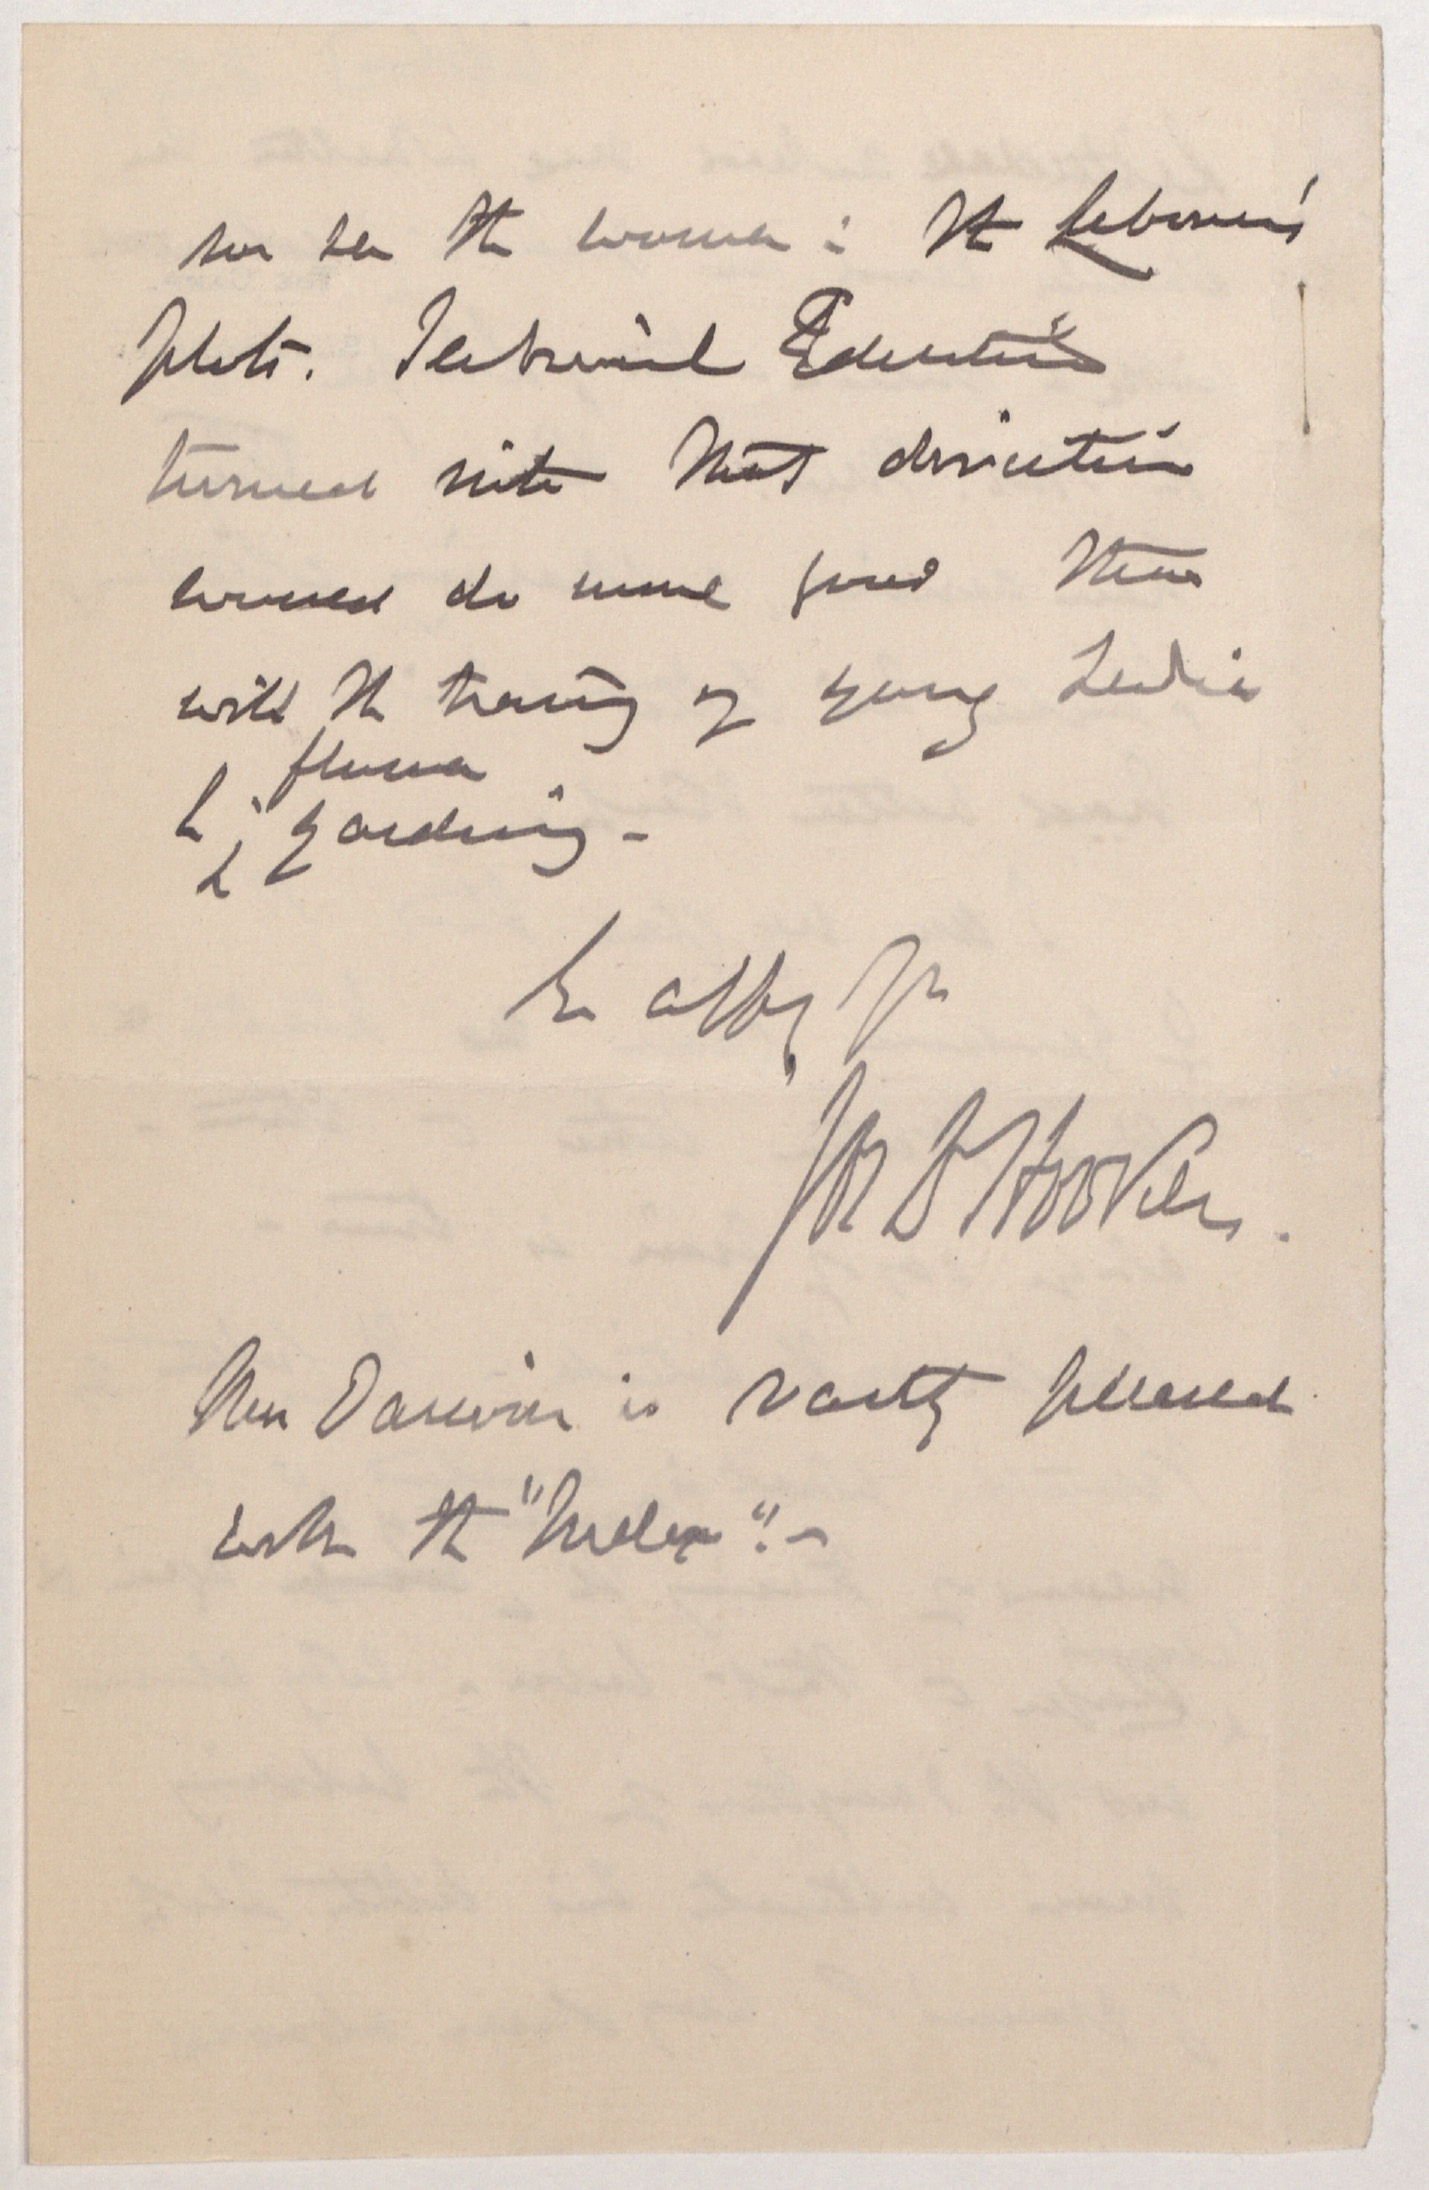 the women: the Labourer's
plots. Technical Education
turned into that direction
would do more good than
will the training of young Ladies
flower
in gardening -
Ev affly Yrs
Jos D Hooker.
Mrs Darwin is vastly pleased
with the "Index". -